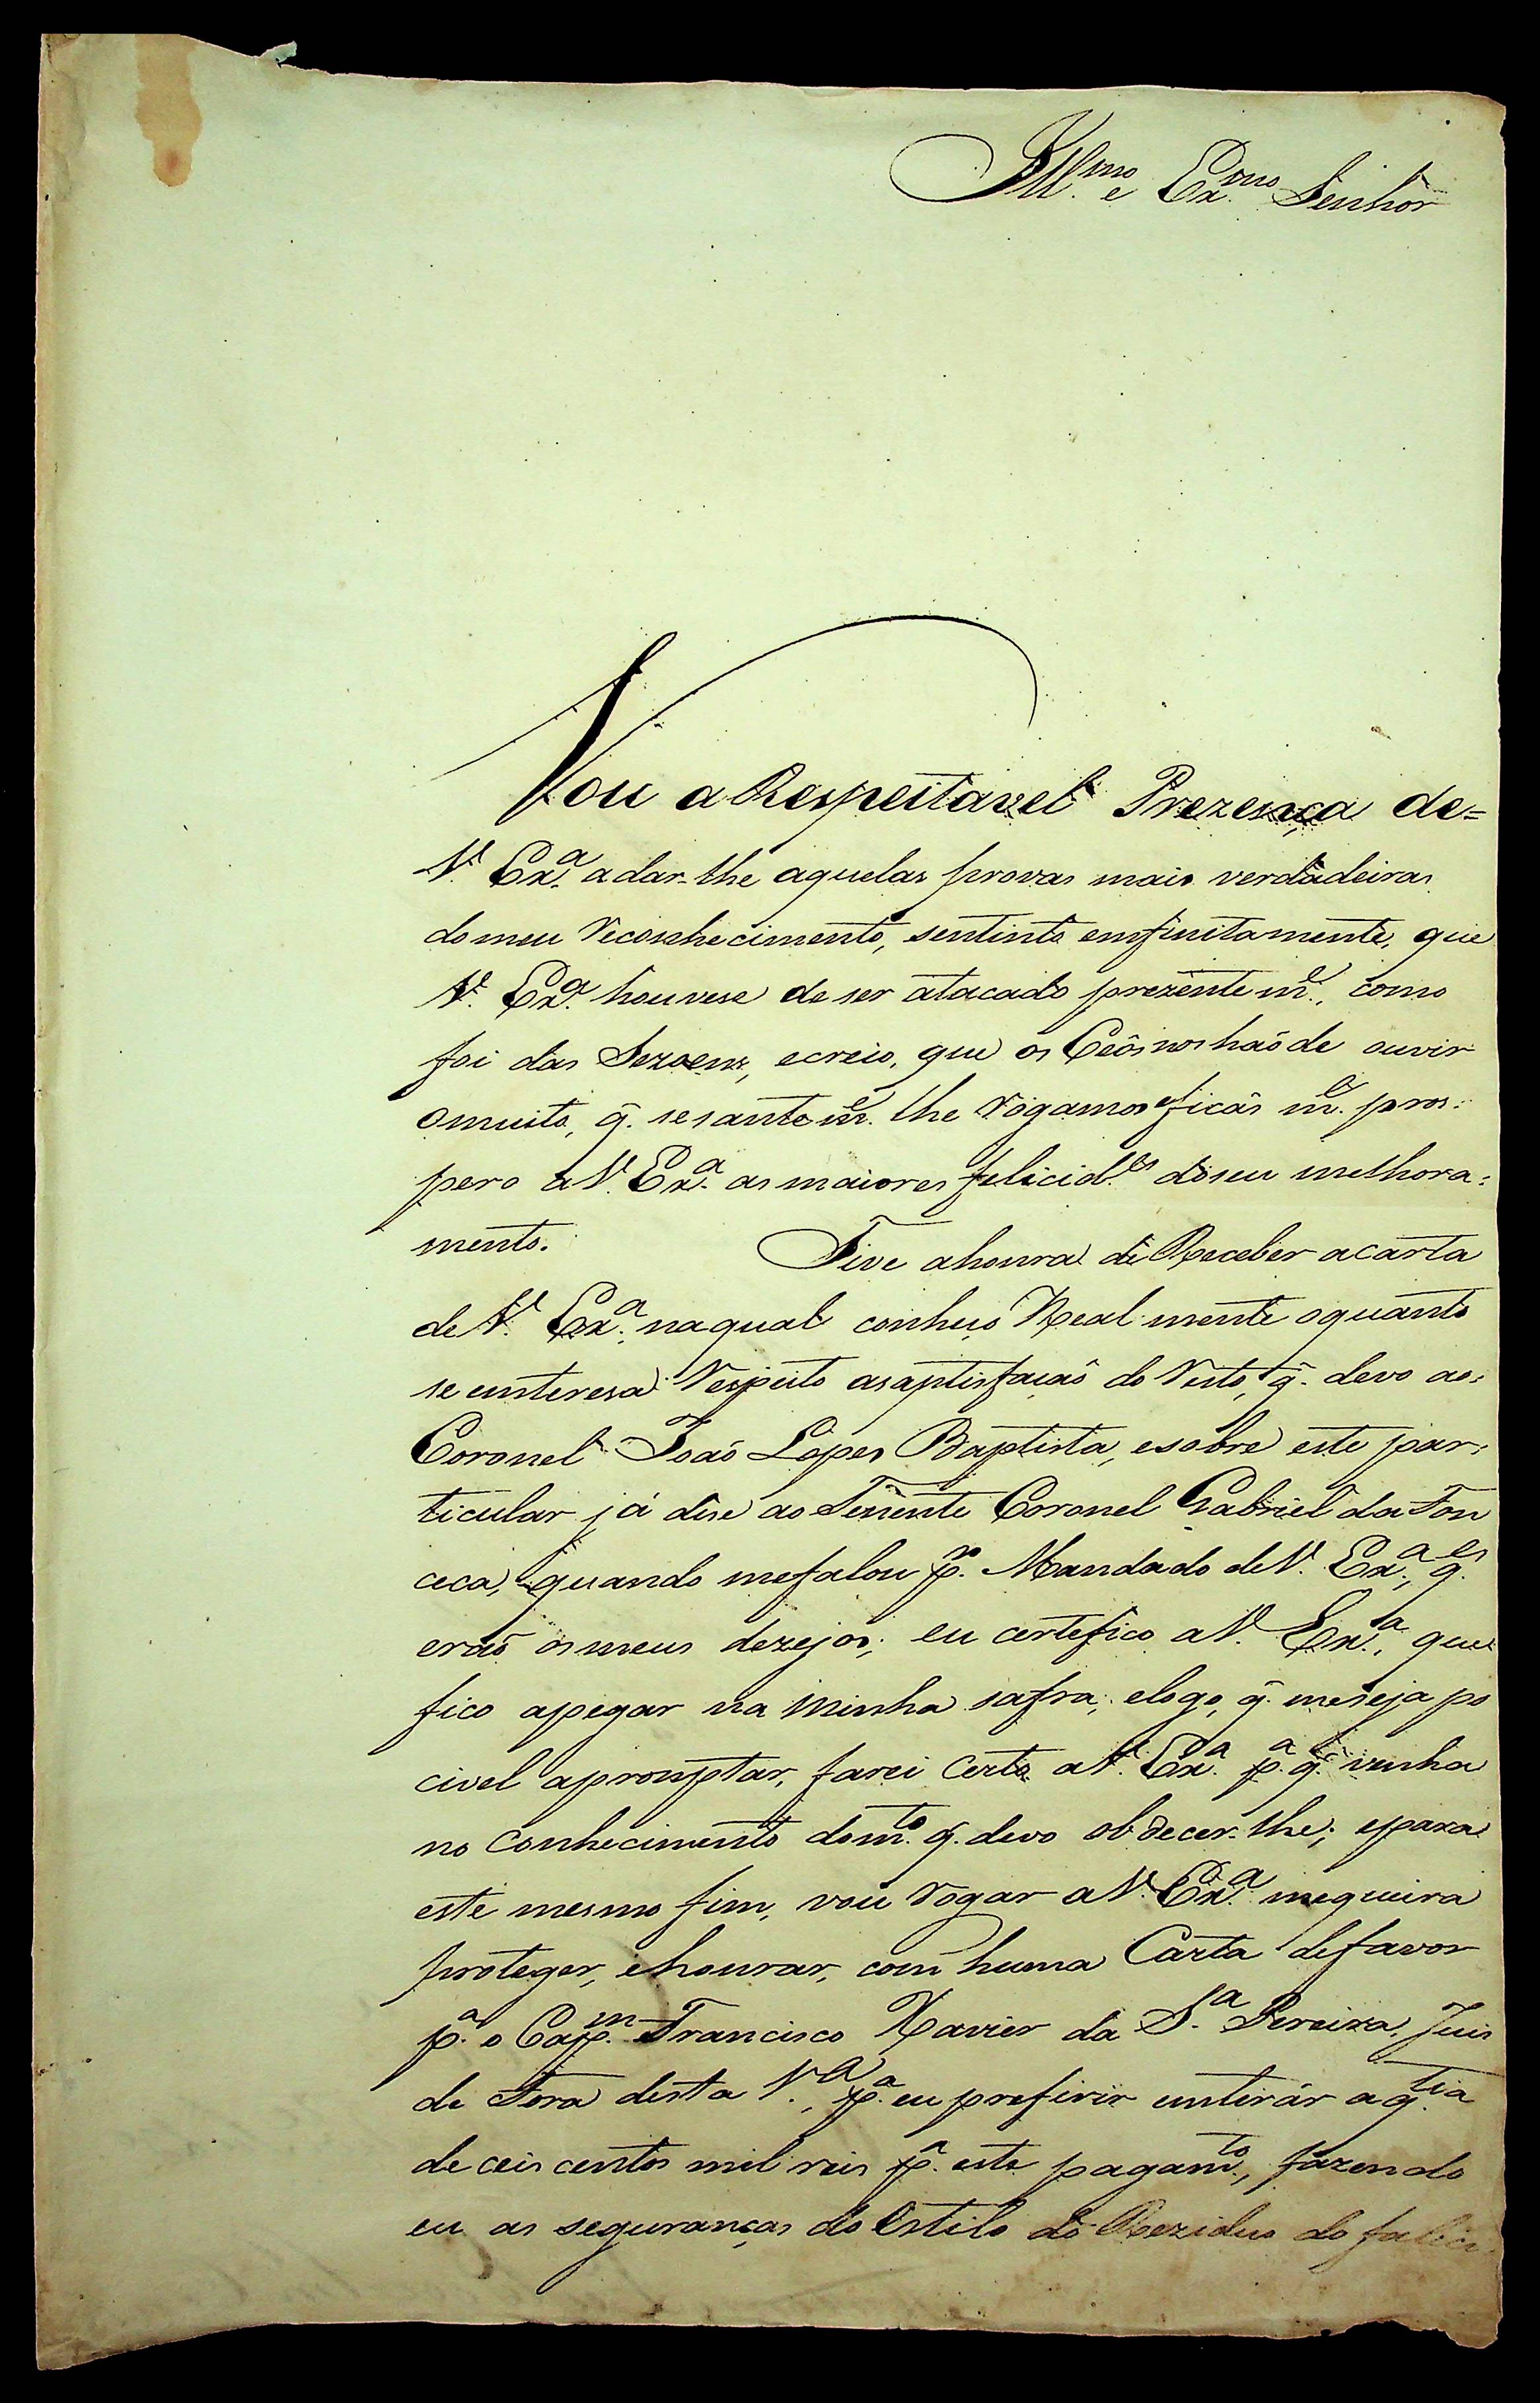 Ill.mo e Ex.mo Senhor
Vou a Respeitavel Prezença de=
V. Ex.a adar-lhe aquelas provas mais verdadeiras
do meu reconhecimento, sentinto emfinitamente, que
V. Ex.a houvese de ser atacado prezentem.e, como
foi das Sezoens, ecreio, que os Ceôs nos haõ de ouvir
omuito, q̃. sesantem.e lhe rogamos eficâs m.e pros:
pero aV. Ex.a as maiores felicid.es do seu melhora:
mento. Tive ahonra de Receber acarta
de V. Ex.a naqual conheço Real mente oquanto
se enteresa respeito asaptisfacaõ do resto, q̃. devo ao:
Coronel Joaõ Lopes Baptista, esobre este par:
ticular já dise ao Tenente Coronel Gabriel da Fon
ceca, quando mefalou p.r Mandado deV. Ex.a, q.es
eraõ os meus dezejos; eu certefico aV. Ex.a, que
fico apegar na minha safra; elogo, q̃. meseja po
civel apromptar, farei Certo aV. Ex.a p.a q̃. venha
no conhecimento dom.to q̃. devo obdecer-lhe; epara
este mesmo fim, vou rogar aV. Ex.a mequeira
proteger, ehonrar, com huma Carta defavor
p.a o Cap.m Francisco Xavier da S.a Pereira, Juis
de Fora desta V.a, p.a eu prefirir entirár aq.tia
de ceis centos mil reis p.a este pagam.to, fazendo
eu as seguranças do Estilo do Reziduo do